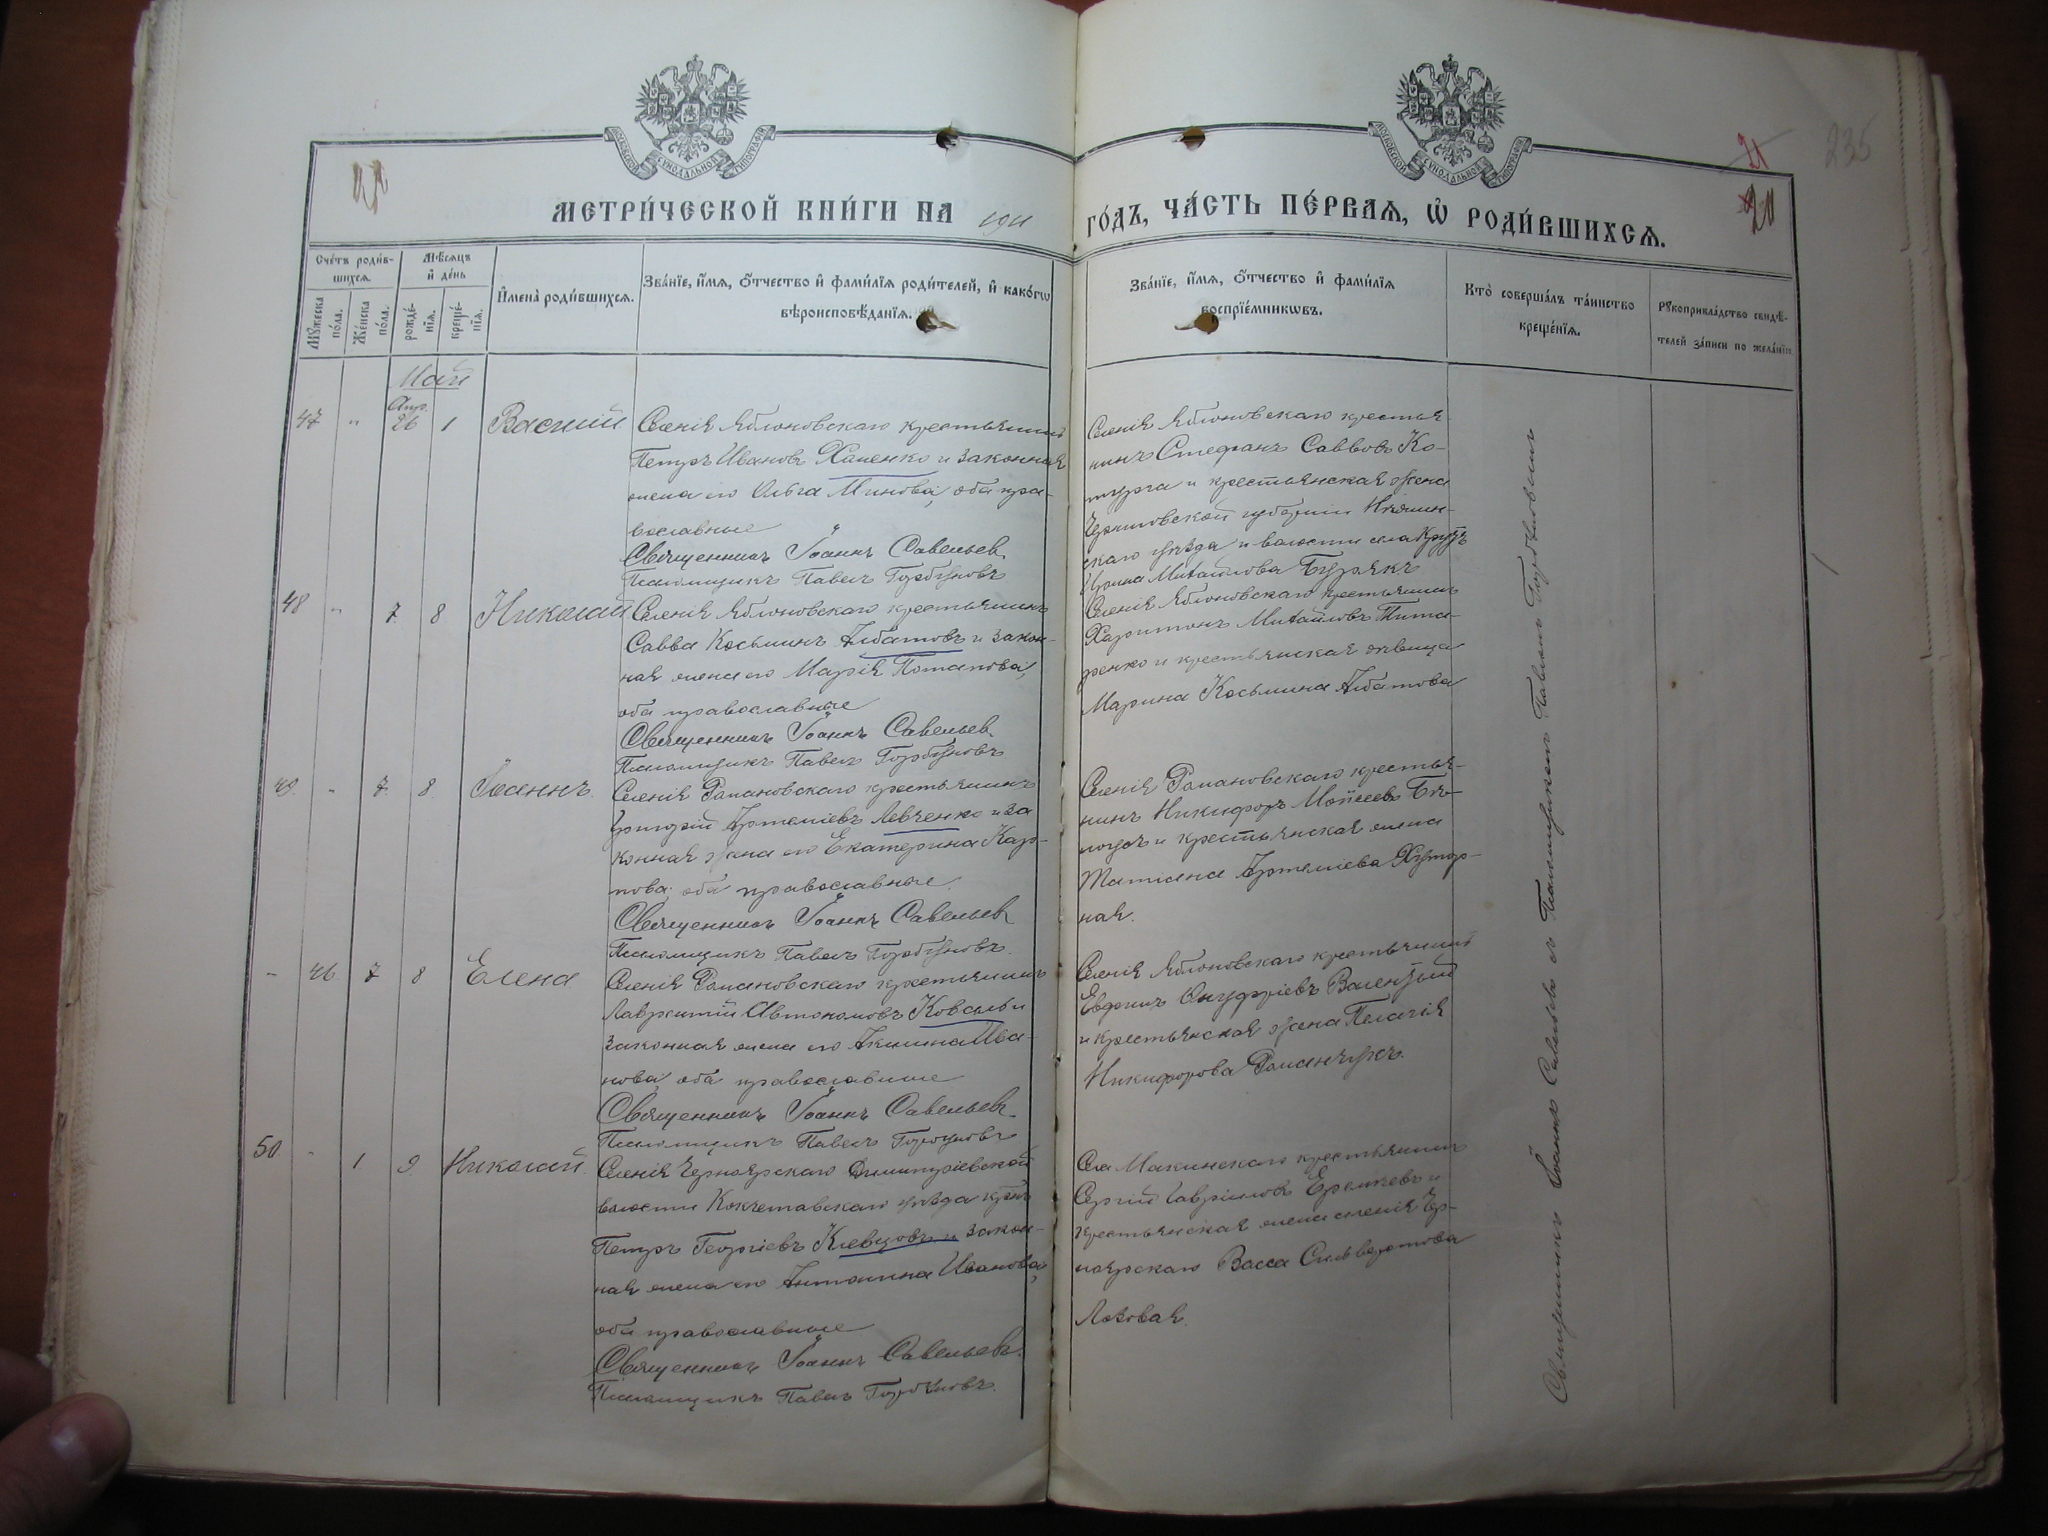 МОСКОВСКОЙ СѴНОДАЛЬНОЙ ТИПОГРАФІИ
МОСКОВСКОЙ СѴНОДАЛЬНОЙ ТИПОГРАФІИ
21
235
МЕТРИ́ЧЕСКОЙ КНИ́ГИ НА 1911 ГО́ДЪ, ЧА́СТЬ ПЕ́РВАѦ, Ѡ҆ РОДИ́ВШИХСѦ.
Сче́тъ роди́в-
шихсѧ.
Мꙋ́жеска по́ла.
Же́нска по́ла.
Мѣ́сѧцъ
и҆ де́нь
рожде́-
нїѧ.
креще́-
нїѧ.
И҆мена̀ роди́вшихсѧ.
Зва́нїе, и҆́мѧ, ѻ҆́тчество и҆ фами́лїѧ роди́телей, и҆ како́гѡ
вѣроисповѣ́данїѧ.
Зва́нїе, и҆́мѧ, ѻ҆́тчество и҆ фами́лїѧ
воспрїе́мникѡвъ.
Кто̀ соверша́лъ та́инство
креще́нїѧ.
Рꙋкоприкла́дство свидѣ́-
телей за́писи по жела́нїю
Май
47 " Апр. 26 1 Василій
Селенія Яблоновскаго крестьянинъ
Петръ Ивановъ Хаменко и законная
жена его Ольга Минова, оба пра-
вославные
Священникъ Іоаннъ Савельевъ
Псаломщикъ Павелъ Горбуновъ
Селенія Яблоновскаго крестья-
нинъ Стефанъ Саввовъ Ко-
и крестьянская жена
Черниговской губерніи Нѣжин-
скаго уѣзда и волости села
Ирина Михайлова Бурякъ
48 " 7 8 Николай
Селенія Яблоновскаго крестьянинъ
Савва Косьминъ Албатовъ и закон-
ная жена его Марія Потапова,
оба православные
Священникъ Іоаннъ Савельевъ
Псаломщикъ Павелъ Горбуновъ
Селенія Яблоновскаго крестьянинъ
Харитонъ Михайловъ Тита-
ренко и крестьянская дѣвица
Марина Косьмина Албатова
49 " 7 8 Іоаннъ
Селенія Романовскаго крестьянинъ
Григорій Артеміевъ Левченко и за
конная жена его Екатерина Кар-
пова, оба православные
Священникъ Іоаннъ Савельевъ
Псаломщикъ Павелъ Горбуновъ
Селенія Романовскаго крестья-
нинъ Никифоръ Мойсеевъ Бѣ-
и крестьянская жена
Татіана Артеміева Хутор-
ная.
- 46 7 8 Елена
Селенія Романовскаго крестьянинъ
Лаврентій Автономовъ Коваль и
законная жена его Акилина Ива-
нова, оба православные
Священникъ Іоаннъ Савельевъ
Псаломщикъ Павелъ Горбуновъ
Селенія Яблоновскаго крестьянинъ
Онуфріевъ
и крестьянская жена Пелагія
Никифорова Романчукъ
50 - 1 9 Николай
Селенія Черноярскаго Димитріевской
волости Кокчетавскаго уѣзда крест.
Петръ Георгіевъ Клевцовъ и закон-
ная жена его Антонина Иванова,
оба православные
Священникъ Іоаннъ Савельевъ
Псаломщикъ Павелъ Горбуновъ.
Села Макинскаго крестьянинъ
Сергій Гавріиловъ Еремѣевъ и
крестьянская жена селенія Чер-
ноярскаго Васса Сильверстова
Лозовая.
Священникъ Іоаннъ Савельевъ съ Псаломщикомъ Павломъ Горбуновымъ